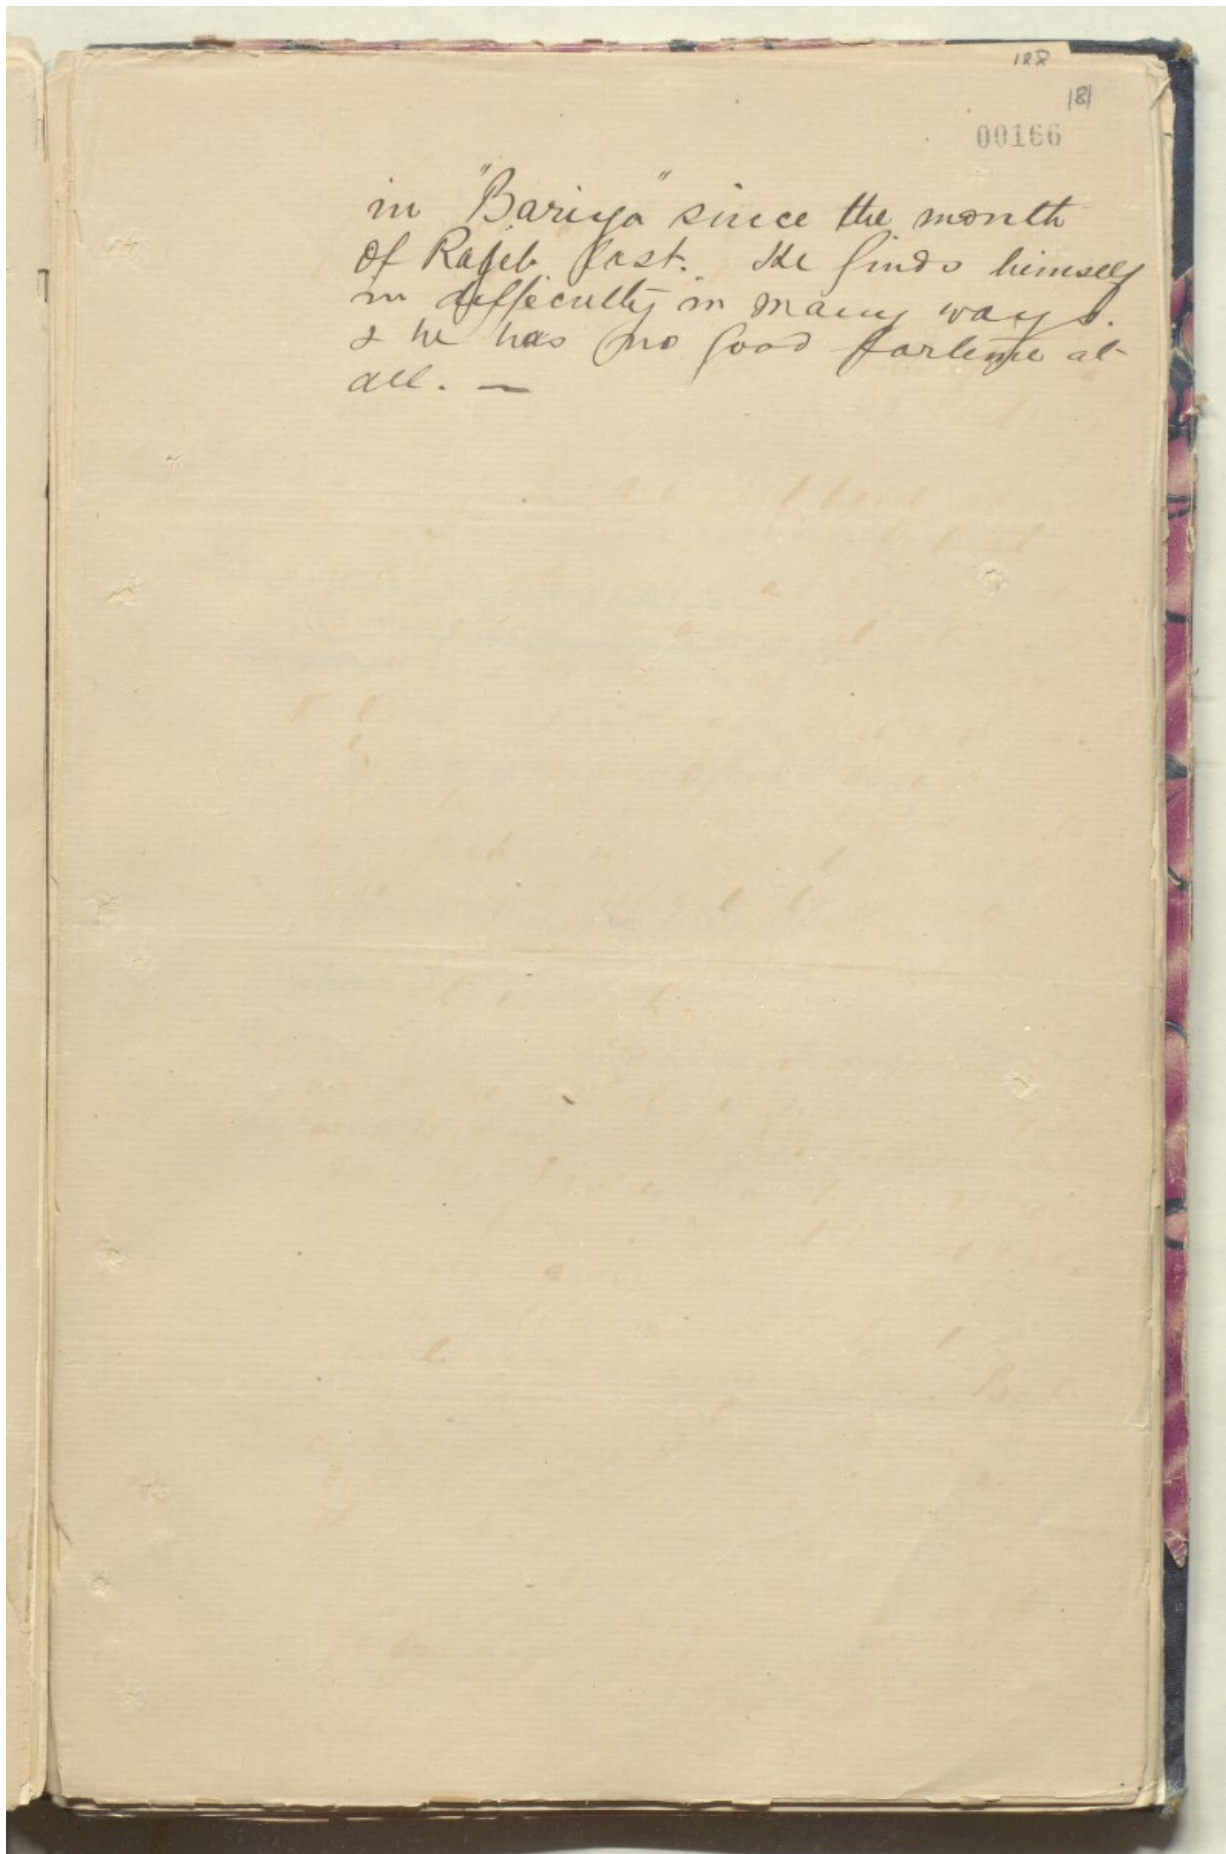 128
181
00166
in "Bariya" since the month
of Rajeb last. He finds himself
in difficulty in many ways.
& he has no good fortune at
all. —